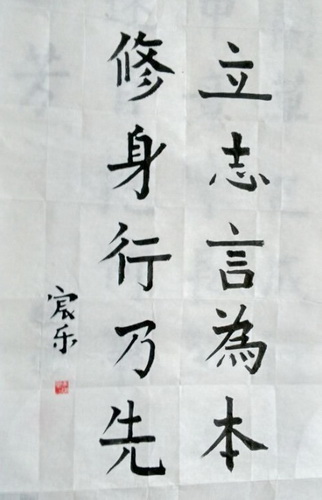 立志言為本
修身行乃先
宸乐